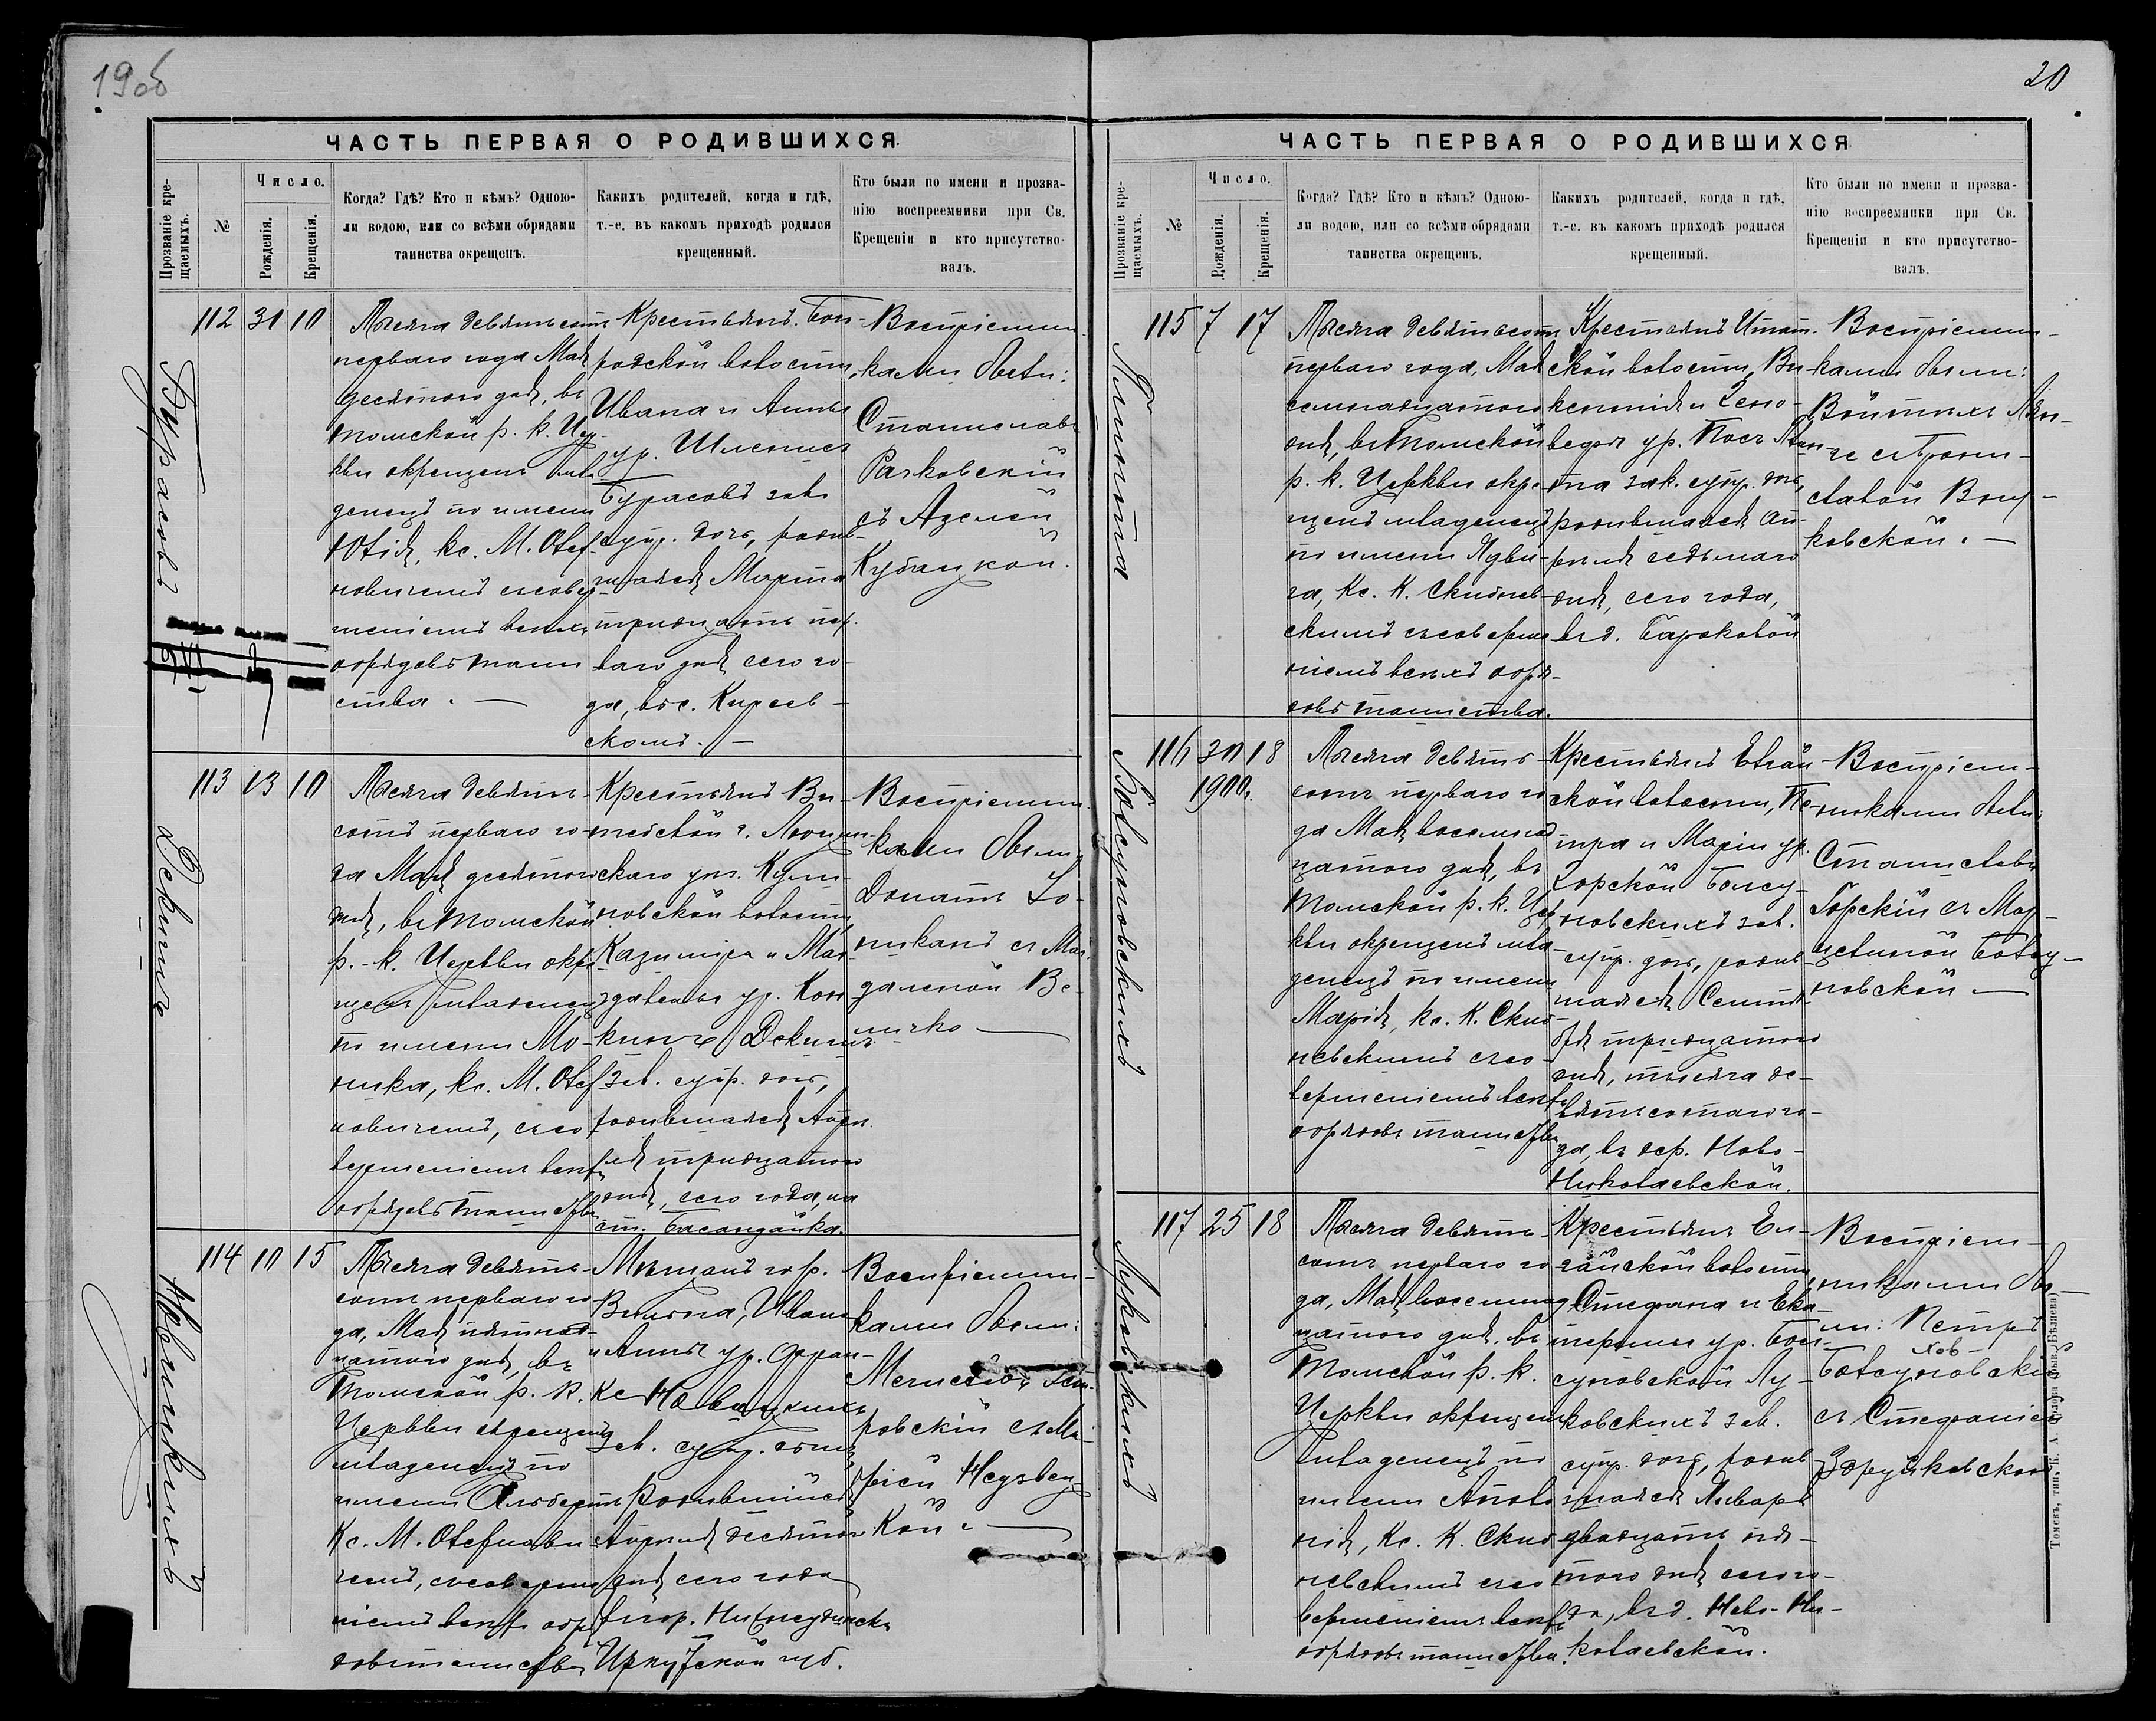 19об
ЧАСТЬ ПЕРВАЯ О РОДИВШИХСЯ.
Прозваніе кре-
щаемыхъ.
№
Число.
Рожденія.
Крещенія.
Когда? Гдѣ? Кто и кѣмъ? Одною-
ли водою, или со всѣми обрядами
таинства окрещенъ.
Какихъ родителей, когда и гдѣ,
т.-е. въ какомъ приходѣ родился
крещенный.
Кто были по имени и прозва-
нію воспреемники при Св.
Крещеніи и кто присутство-
валъ.
Бурасовъ
112 31 10
Тысяча девятьсотъ
перваго года Мая
десятого дня, въ
Томской р. к. Цер-
кви окрещенъ мла-
денецъ по имени
Юлія, кс. М. Олеф-
новичемъ съ совер-
шеніемъ всѣхъ
обрядовъ таин
ства. —
Крестьянъ
волости,
Ивана и Анны
ур.
Бурасовъ зак.
супр. дочь, родив-
шаяся Марта
тридцать пер-
ваго дня сего го-
да, въ с. Киреев-
скомъ. —
Воспріемни-
ками были:
Станиславъ
Рачковскій
съ Аделей
Кубацкой.
Декшня
113 13 10
Тысяча девять-
сотъ перваго го-
да Мая десятого
дня, въ Томской
р. к. Церкви окре-
щенъ младенецъ
по имени Мо-
ника, кс. М. Олеф-
новичемъ, съ со-
вершеніемъ всѣхъ
обрядовъ таинства
Крестьянъ Ви-
тебской г.
скаго уѣз.
новской волости,
Казиміра и Маг-
далены ур.
зак. супр. дочь,
родившаяся Апрѣ-
ля тридцатого
дня, сего года, на
ст. Басандайка.
Воспріемни-
ками были
Донатъ
съ Маг-
даленой Ве-
личко —
Новицкихъ
114 10 15
Тысяча девять-
сотъ перваго го-
да, Мая пятнад-
цатого дня, въ
Томской р. к.
Церкви окрещенъ
младенецъ по
имени Альбертъ
Кс. М. Олефнови-
чемъ, съ соверше-
ніемъ всѣхъ обря-
довъ таинства
Мѣщанъ гор.
Вильна, Ивана
и Анны ур.
Новицкихъ
зак. супр. сынъ
Родившійся
Апрѣля десятого
дня сего года
въ гор. Нижнеудинскѣ
Иркутской губ.
Воспріемни-
ками были:
съ Ма-
ріей
кой. —
20
ЧАСТЬ ПЕРВАЯ О РОДИВШИХСЯ.
Прозваніе кре-
щаемыхъ.
№
Число.
Рожденія.
Крещенія.
Когда? Гдѣ? Кто и кѣмъ? Одною-
ли водою, или со всѣми обрядами
таинства окрещенъ.
Какихъ родителей, когда и гдѣ,
т.-е. въ какомъ приходѣ родился
крещенный.
Кто были по имени и прозва-
нію воспреемники при Св.
Крещеніи и кто присутство-
валъ.
115 7 17
Тысяча девятьсотъ
перваго года, Мая
семнадцатого
дня, въ Томской
р. к. Церкви окре-
щенъ младенецъ
по имени Ядви-
га, Кс. К.
скимъ съ соверше-
ніемъ всѣхъ обря-
довъ таинства.
Крестьянъ
ской волости, Ви-
кентія и
зак. супр. дочь,
родившаяся Ап-
рѣля седьмаго
дня, сего года,
въ д. Бароковой
Воспріемни-
ками были:
Войтехъ
съ Брони-
славой
ковской. —
Болсуновскихъ
116 30 18
1900г.
Тысяча девять-
сотъ перваго го-
да Мая восемнад-
цатого дня, въ
Томской р. к. Цер-
кви окрещенъ мла-
денецъ по имени
Марія, кс. К.
невскимъ съ со-
вершеніемъ всѣхъ
обрядовъ таинства
Крестьянъ Елгай-
ской волости, Пе-
тра и Маріи ур.
Горской Болсу-
новскихъ зак.
супр. дочь, родив-
шаяся Сентя-
бря тридцатого
дня, тысяча де-
вятьсотаго го-
да, въ дер. Ново-
Николаевской.
Воспріем-
никами были:
Станиславъ
Горскій съ Мар-
целиной Болсу-
новской —
Луковскихъ
117 25 18
Тысяча девять-
сотъ перваго го-
да, Мая восемнад-
цатого дня, въ
Томской р. к.
Церкви окрещенъ
младенецъ по
имени Аполо-
нія, Кс. К.
невскимъ съ со-
вершеніемъ всѣхъ
обрядовъ таинства.
Крестьянъ Ел-
гайской волости
Стефана и Ека-
терины ур. Бол-
суновской Лу-
ковскихъ зак.
супр. дочь, родив-
шаяся Января
двадцать пя-
того дня сего го-
да, въ д. Ново-Ни-
колаевской.
Воспріем-
никами бы-
ли: Петръ
Болсуновскій
съ Стефаніей